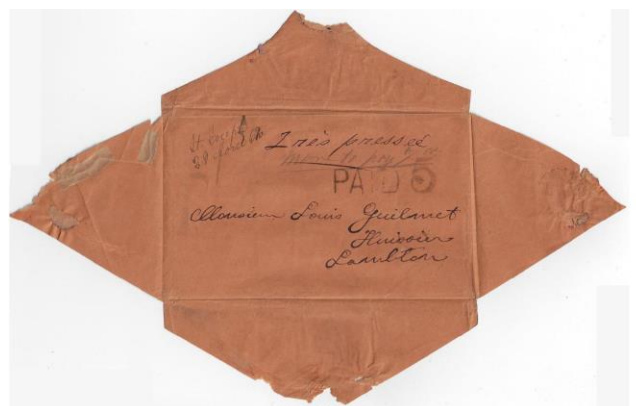 St. Joseph
29
Très pressé
PAID 3
Monsieur Louis Guilmet
Huissier
Lambton